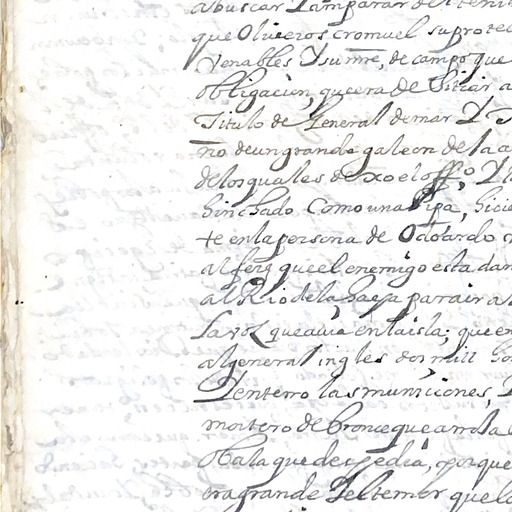 abuscar Yamparar del
que Oliveros cromuel suprotec
Venables Ysu mre, de campo que
obligacion, que era de sitiar a
Titulo de General demar Y
no deungrande galeon dela a
delosquales dexo el offo, Y
hinchado como una Pipa, hicie
te en lapersona de Odoardo
alferez queel enemigo esta dan
al Rio dela haya parair a
la voz que avia en la isla; que en
al general ingles dos mill ho
Yenterro las municiones,
mortero de bronce que arrola
bala que despedia, porque
era grande Yeltemor que lo